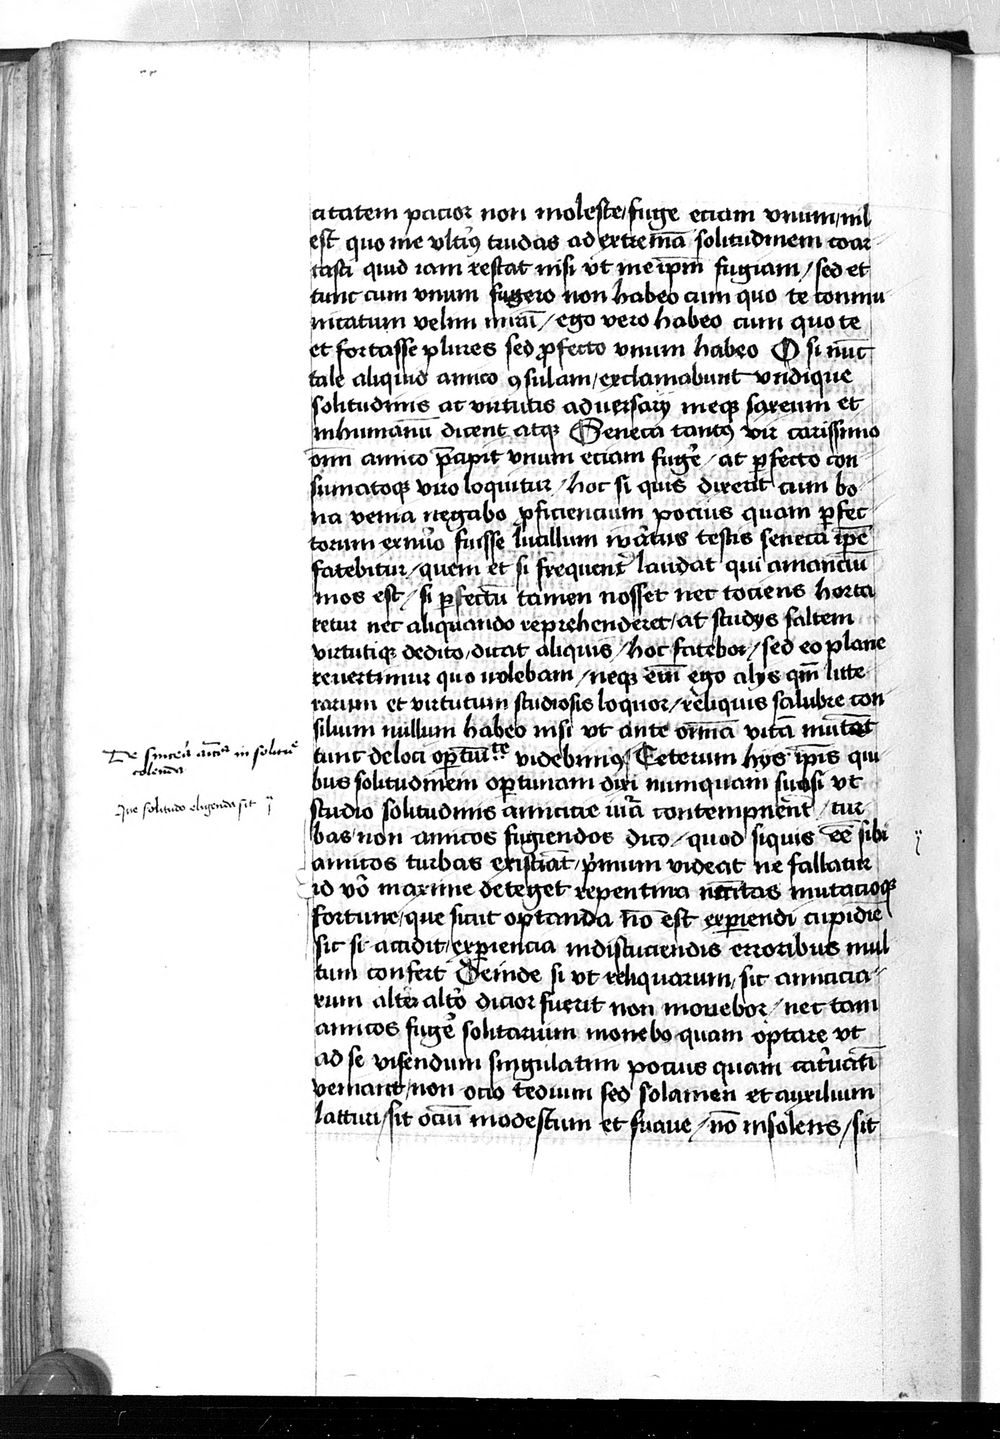 citatem pacior non moleste/ fuge eciam vnum/ nil
est quo me vltiꝰ trudas ad extremā solitudinem coar
tasti quid iam restat nisi vt me ip̄m fugiam / sed et
tunc cum vnum fugero non habeo cum quo te commu
nicatum velim mirū / ego vero habeo cum quo te
et fortasse plures sed ꝓfecto vnum habeo O si nūc
tale aliquid amico ꝯsulam / exclamabunt vndique
solitudinis ac virtutis aduersarij meqꝫ saxeum et
inhumanū dicent atqꝫ Seneca tantꝰ vir carissimo
om̄i amico p̄cipit vnum eciam fugē / at ꝑfecto con
sumatoqꝫ viro loquitur / hoc si quis dixerit cum bo
na venia negabo ꝓficiencium pocius quam ꝑfec
torum ex nūo fuisse lucillum testis seneca ip̄e
fatebitur / quem et si frequent̄ laudat qui amanciū
mos est / si ꝑfectū tamen nosset nec tociens horta
retur nec aliquando reprehenderet / at studijs saltem
virtutiqꝫ dedito / dicat aliquis / hoc fatebor / sed eo plane
reuertimur quo volebam / neqꝫ eni ego alijs qm̄ litte
rarum et virtutum studiosis loquor / reliquis salubre con
silium nullum habeo nisi vt ante om̄ia vitā mutēt
tunc de loci oꝑtuītate videbimꝰ Ceterum hijs ip̄is qui
bus solitudinem oꝑtunam dixi numquam suasi vt
studio solitudinis amicicie iura contempnent / tur
bas non amicos fugiendos dico / quod siquis eē sibi
amicos turbas existiat / p̄mum videat ne fallatur
id vō maxime deteget repentina necitas mutacioqꝫ
fortune / que sicut optanda nō est exꝑiendi cupidīe
sic si accidit / exꝑiencia indiscuciendis erroribus mul
tum confert Deinde si vt reliquarum / sic amicicia
rum alter altō dicior fuerit non mouebor / nec tam
amicos fugē solitarium monebo quam optare vt
ad se visendum singulatim pocius quam cateruatī
veniant / non ocio tedium sed solamen et auxilium
latturi / sit ociū modestum et suaue / nō insolens / sit
De sincera amīa in solitue
colenda
Que solitudo eligenda sit ij
ij